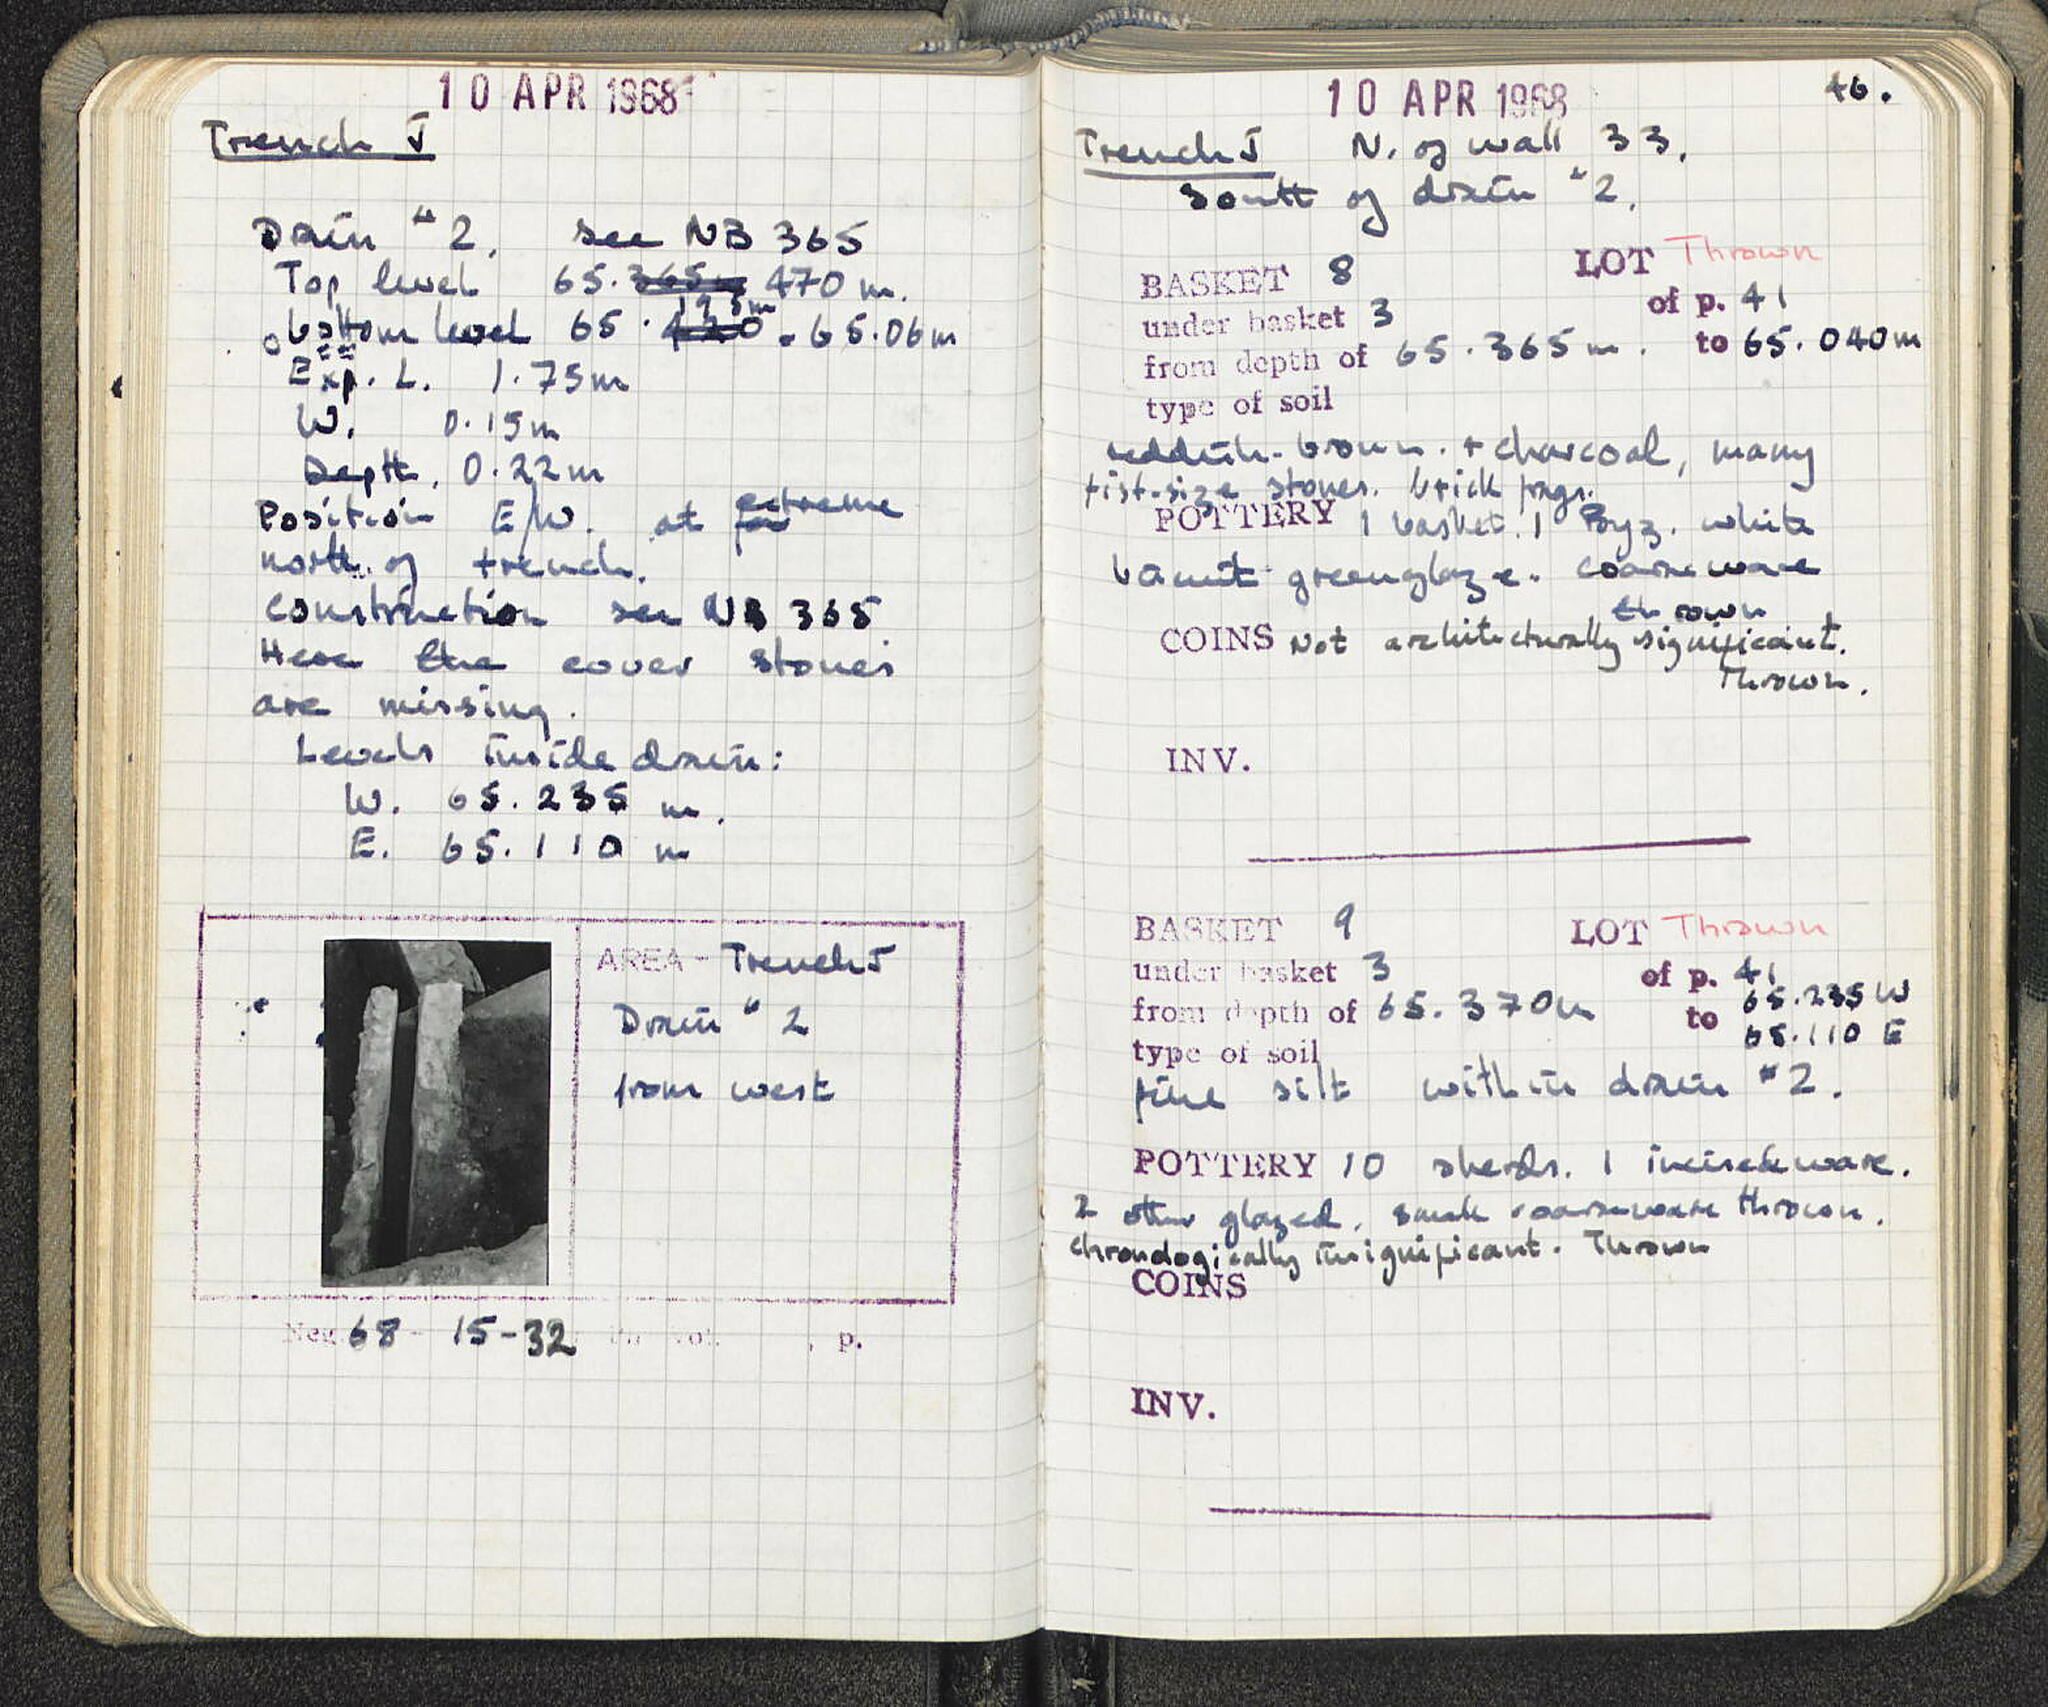 10 APR 1968
Trench J
Drain #2. see NB 365
Top level 65.365m 470 m.
bottom level 65.420 195m 65.06m
Exp. L. 1.75m
W. 0.15m
Depth. 0.22m
Position E/W. at far extreme
north of trench.
Construction see NB 365.
Here the cover stones
are missing.
Levels inside drain:
W. 65.235 m.
E. 65.110 m
AREA - Trench J
Drain #2
from west
Neg 68-15-32 vol. , p.
10 APR 1968
46.
Trench J N. of wall 33.
South of drain #2.
BASKET 8 LOT Thrown
under basket 3 of p. 41
from depth of 65.365 m. to 65.040m
type of soil
reddish-brown. + charcoal, many
fist-size stones. brick frags.
POTTERY 1 basket. 1 Byz. white
biscuit greenglaze. coarse ware
thrown
COINS Not architecturally significant.
Thrown.
INV.
BASKET 9 LOT Thrown
under basket 3 of p. 41
from depth of 65.370m to 65.235 W
65.110 E
type of soil
fine silt within drain #2.
POTTERY 10 sherds. 1 incised ware.
2 other glazed. coarseware thrown.
chronologically insignificant. Thrown
COINS
INV.